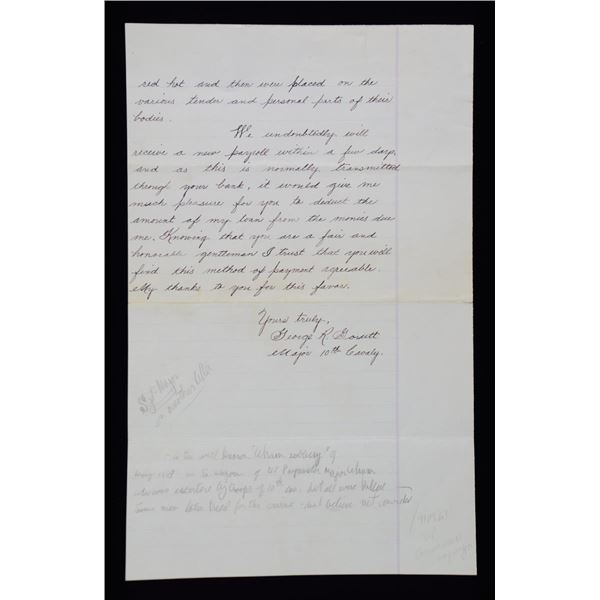 red hot and then were placed on the
various tender and personal parts of their
bodies.
We undoubtedly will
receive a new payroll within a few days,
and as this is normally transmitted
through your bank, it would give me
much pleasure for you to deduct the
amount of my loan from the monies due
me. Knowing that you are a fair and
honorable gentleman I trust that you will
find this method of payment agreeable.
My thanks to you for this favor.
Yours truly,
George R
Major 10th Cavalry.
on another
the well known "Wham robbery" of
of US Paymaster Major Wham
who was escorted by troops of 10th Cav.
men later tried for the crime - but believe not